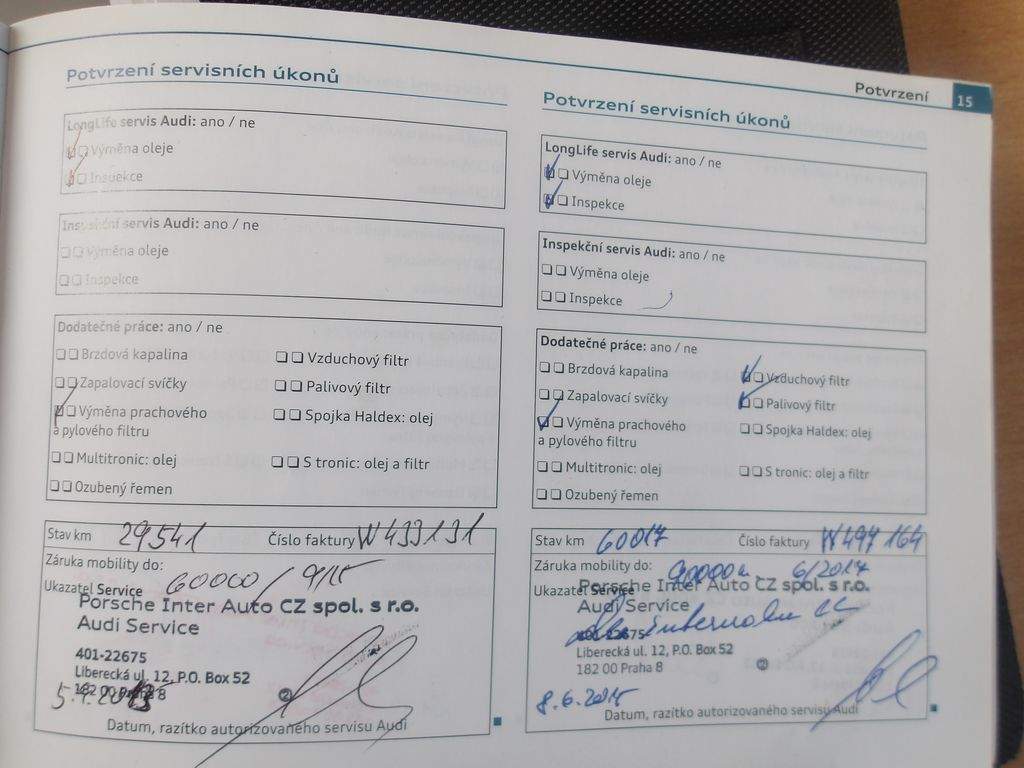 Potvrzení 15
Potvrzení servisních úkonů
LongLife servis Audi: ano / ne
Výměna oleje
Inspekce
Inspekční servis Audi: ano / ne
Výměna oleje
Inspekce
Dodatečné práce: ano / ne
Brzdová kapalina
Vzduchový filtr
Zapalovací svíčky
Palivový filtr
Výměna prachového
a pylového filtru
Spojka Haldex: olej
Multitronic: olej
S tronic: olej a filtr
Ozubený řemen
Stav km 29541 Číslo faktury W433131
Záruka mobility do:
Ukazatel Service 60000 / 9/15
Porsche Inter Auto CZ spol. s r.o.
Audi Service
401-22675
Liberecká ul. 12, P.O. Box 52
182 00 Praha 8
2
Datum, razítko autorizovaného servisu Audi
Potvrzení servisních úkonů
LongLife servis Audi: ano / ne
Výměna oleje
Inspekce
Inspekční servis Audi: ano / ne
Výměna oleje
Inspekce
Dodatečné práce: ano / ne
Brzdová kapalina
Vzduchový filtr
Zapalovací svíčky
Palivový filtr
Výměna prachového
a pylového filtru
Spojka Haldex: olej
Multitronic: olej
S tronic: olej a filtr
Ozubený řemen
Stav km 60017 Číslo faktury W497164
Záruka mobility do: 6/2017
Ukazatel Service
Porsche Inter Auto CZ spol. s r.o.
Audi Service
dle intervalu
401-22675
Liberecká ul. 12, P.O. Box 52
182 00 Praha 8
2
8.6.2015
Datum, razítko autorizovaného servisu Audi